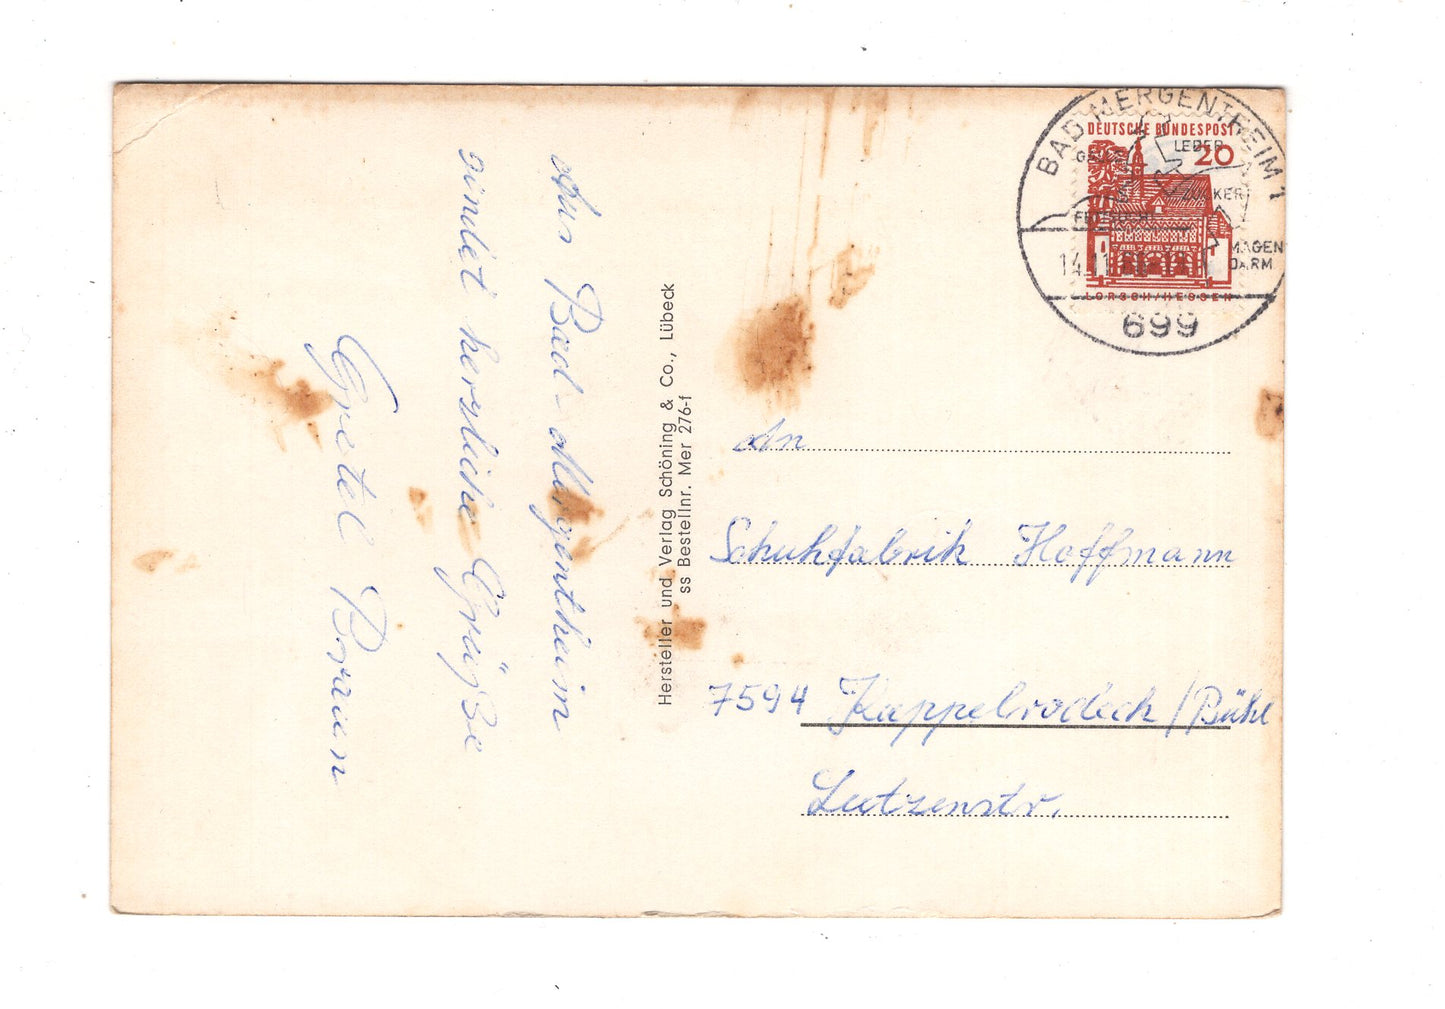 Aus Bad-Mergentheim
sindet herzliche Grüße
Gretel Braun
Hersteller und Verlag Schöning & Co., Lübeck
ss Bestellnr. Mer 276-f
BAD MERGENTHEIM 1
DEUTSCHE BUNDESPOST
20
LEBER
MAGEN
DARM
LORSCH/HESSEN
699
An
Schuhfabrik Hoffmann
7594 Kappelrodeck/Bühl
Lutzenstr.